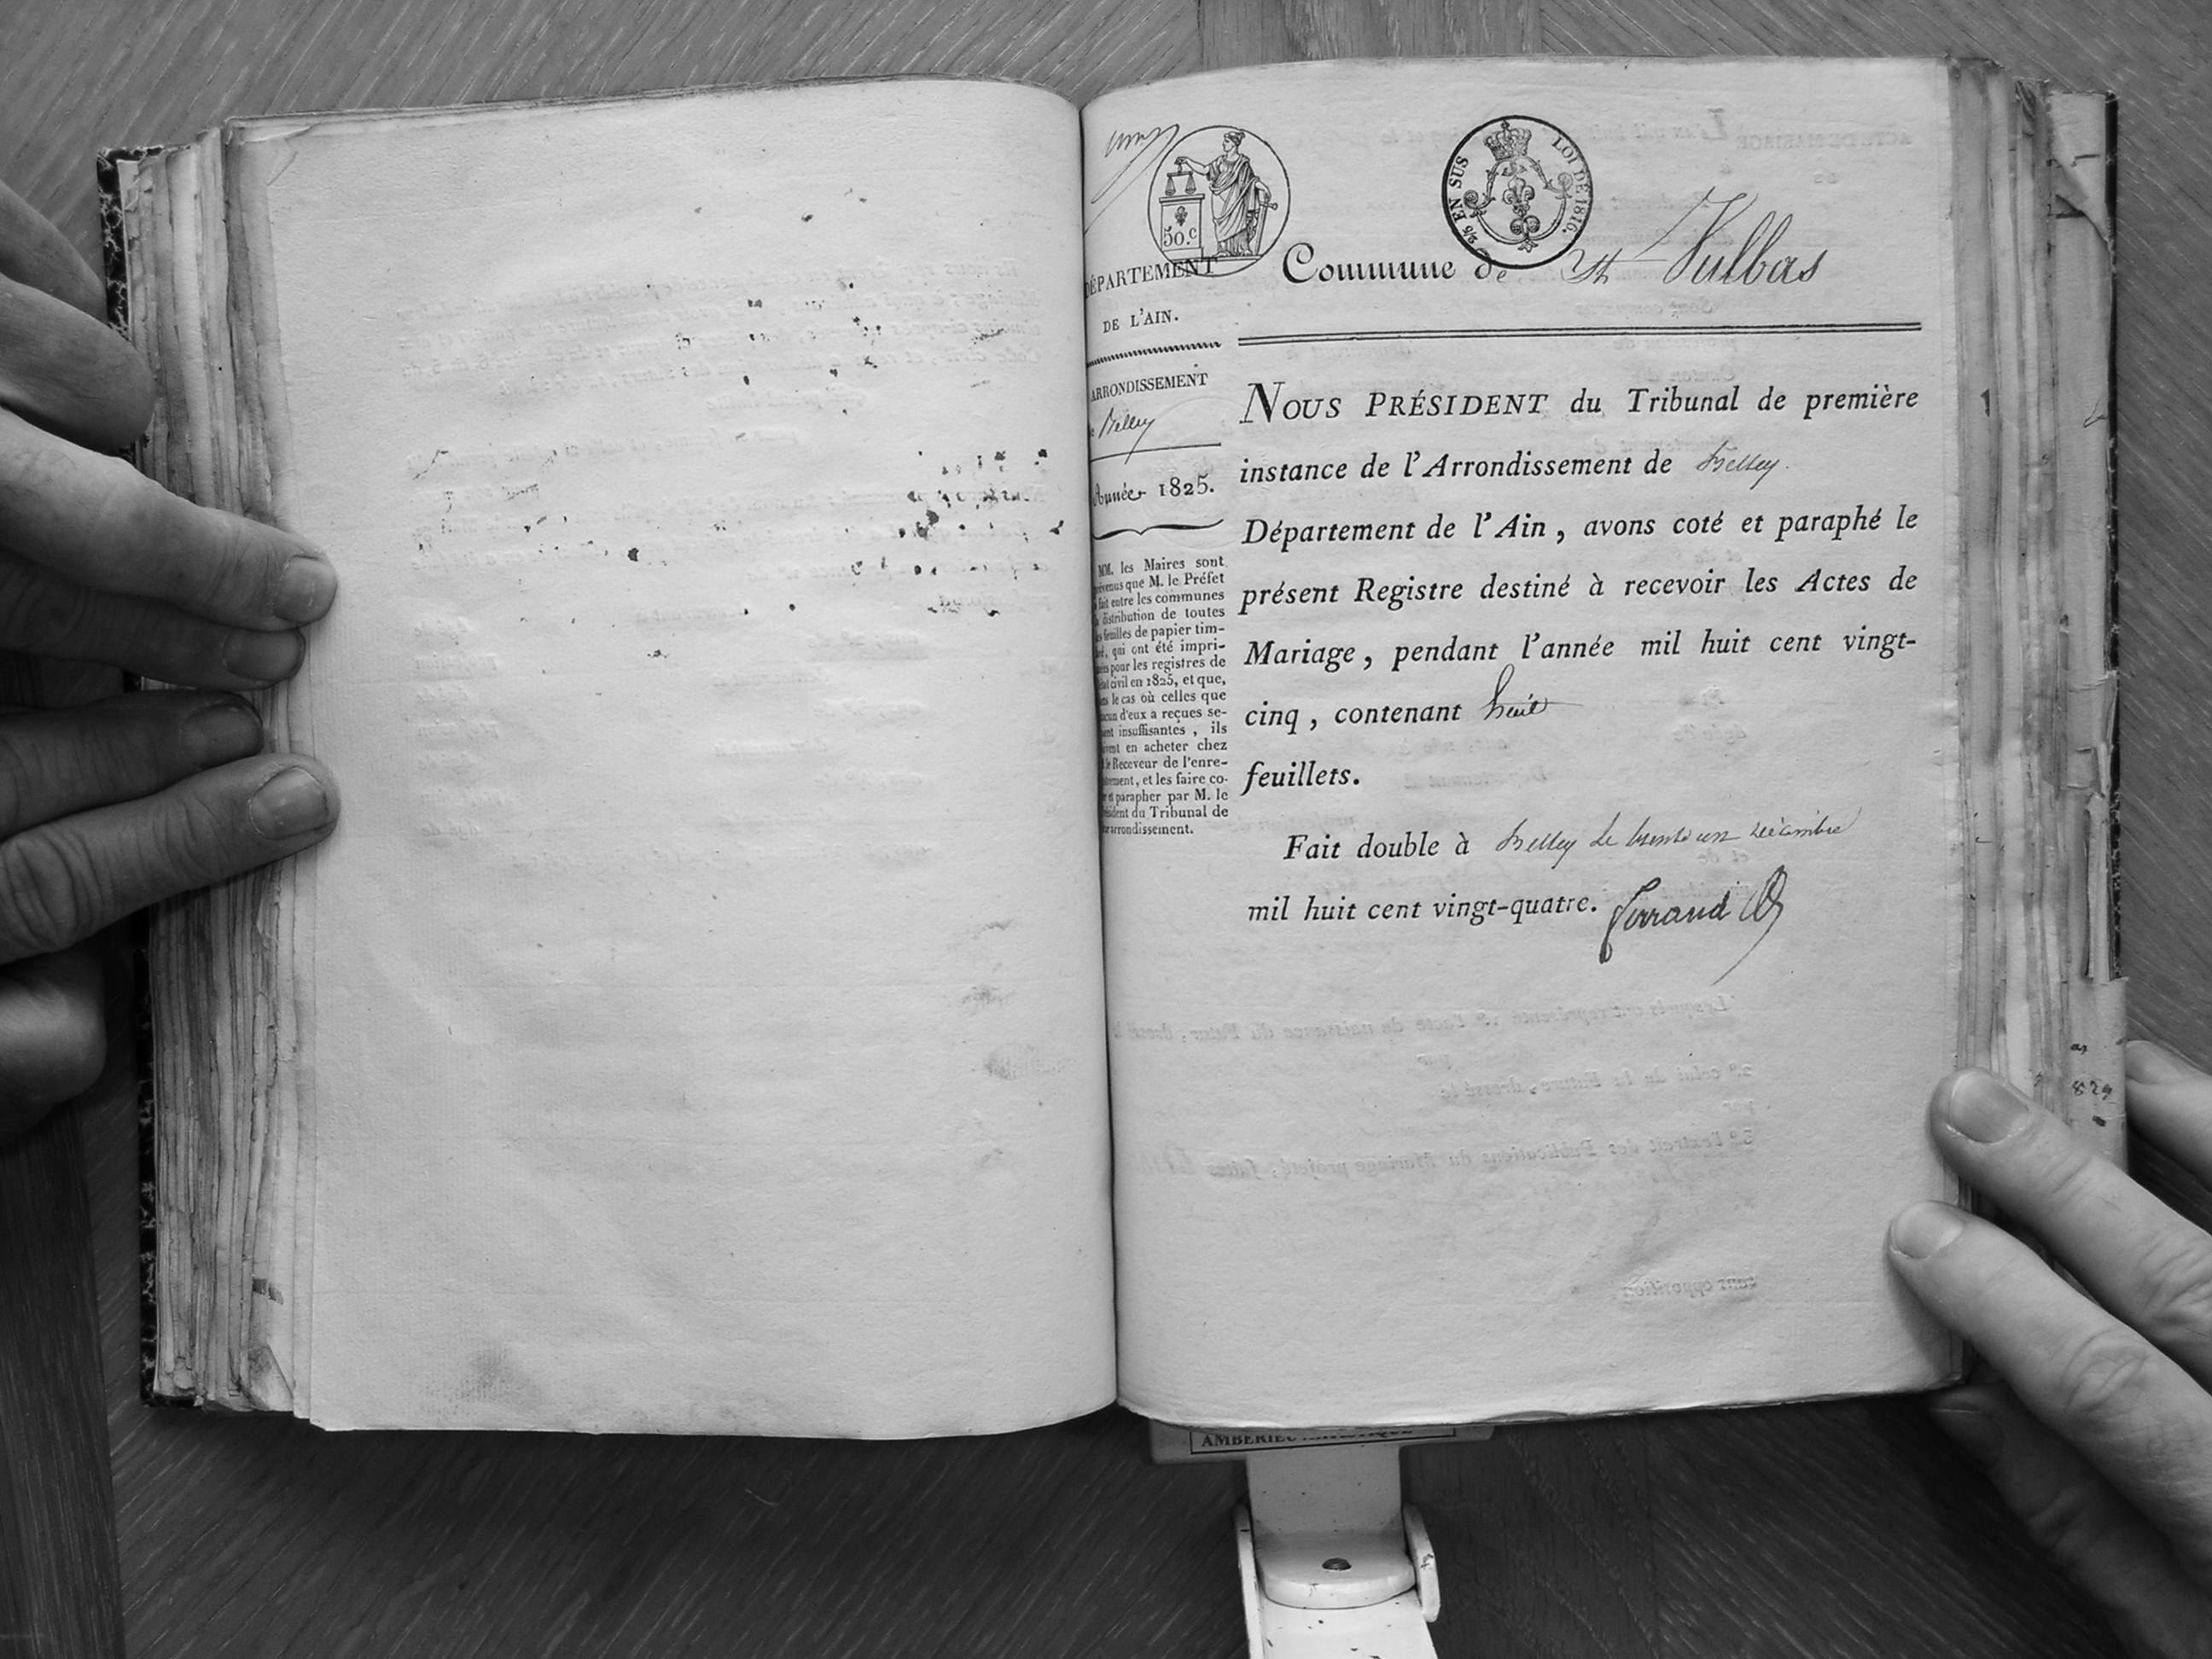 50.c
2/5 EN SUS
LOI DE 1816.
DÉPARTEMENT
DE L'AIN.
ARRONDISSEMENT
Belley
Année 1825.
MM. les Maires sont
prévenus que M. le Préfet
a fait entre les communes
la distribution de toutes
les feuilles de papier tim-
bré, qui ont été impri-
mées pour les registres de
l'état civil en 1825, et que,
dans le cas où celles que
chacun d'eux a reçues se-
raient insuffisantes, ils
doivent en acheter chez
le Receveur de l'enre-
gistrement, et les faire co-
ter et parapher par M. le
Président du Tribunal de
leur arrondissement.
Commune de St Vulbas
NOUS PRÉSIDENT du Tribunal de première
instance de l'Arrondissement de Belley.
Département de l'Ain, avons coté et paraphé le
présent Registre destiné à recevoir les Actes de
Mariage, pendant l'année mil huit cent vingt-
cinq, contenant huit
feuillets.
Fait double à Belley le trente un décembre
mil huit cent vingt-quatre. Ferrand
829